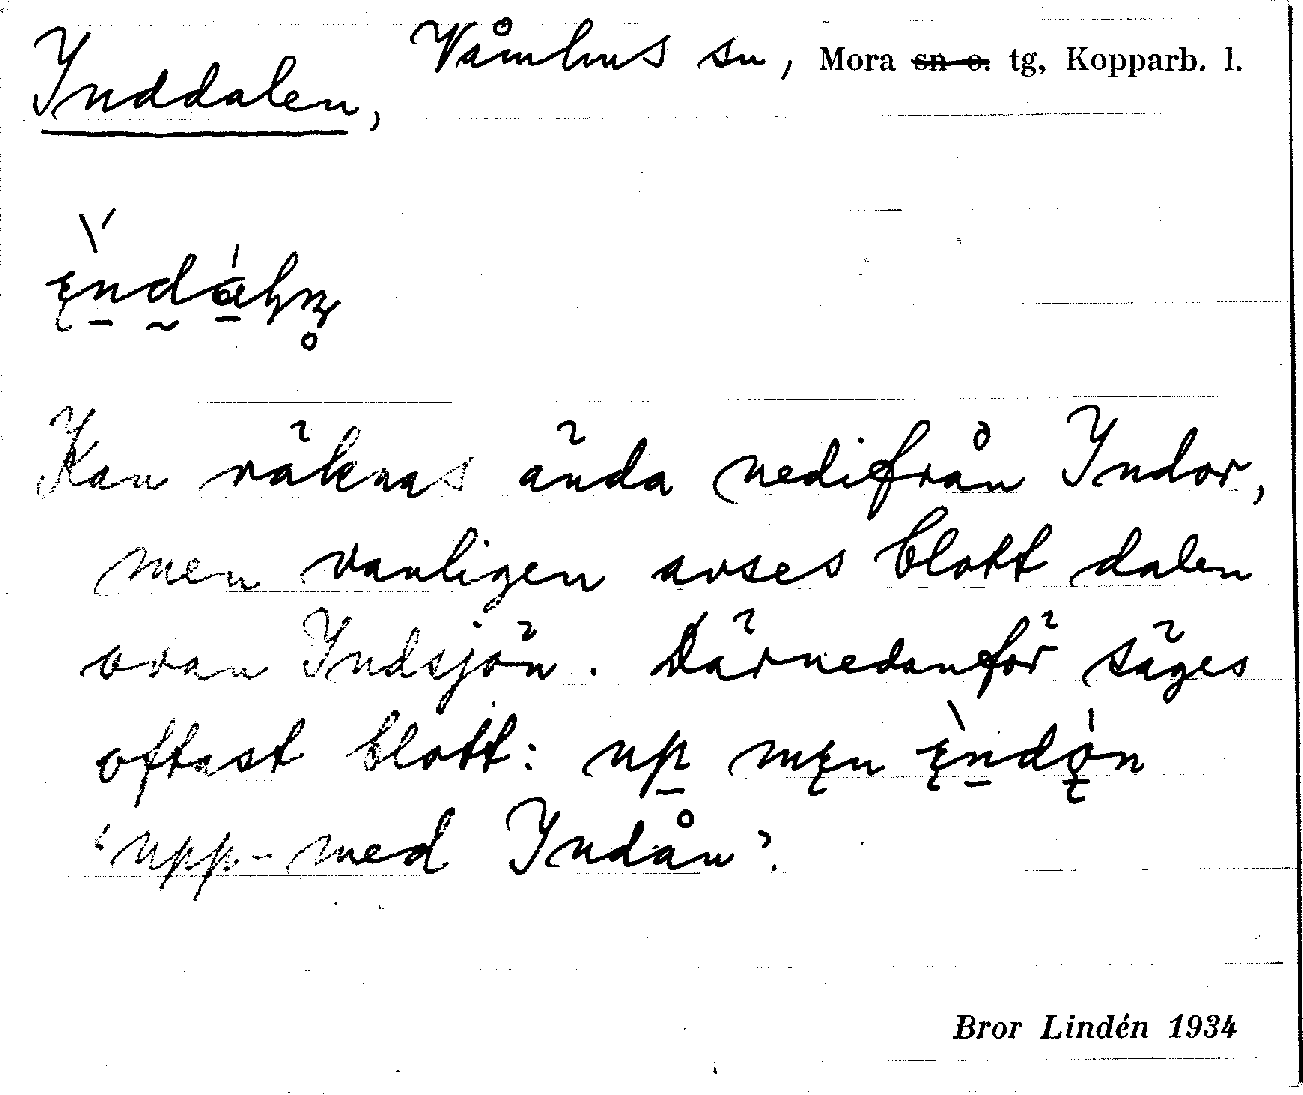 Inddalen, Våmhus sn, Mora sn o. tg, Kopparb. l.
Kan räknas ända nedifrån Indor,
men vanligen avses blott dalen
ovan Indsjön. Därnedanför säges
oftast blott: up męn ę̀ndǫ́n
‘upp-med Indån’.
Bror Lindén 1934